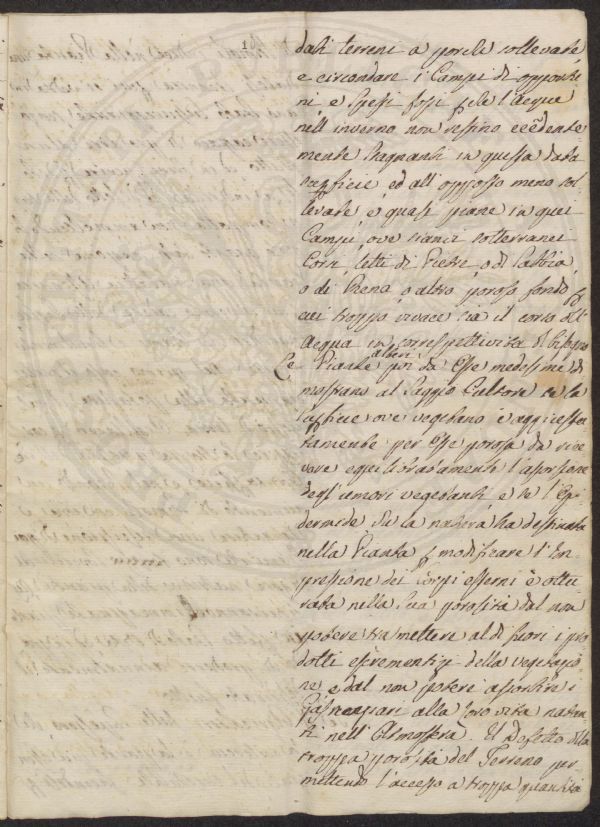 dati terreni a porche sollevate
e circondare i Campi di opportu
ni e spessi fossi p che l'acque
nell inverno non restino eccedente
mente stagnanti in questa data
superficie ed all opposto meno sol
levate e quasi piane in quei
Campi ove sianvi sotterranei
Corsi letti di Pietre o di Sabbia
o di Arena o altro poroso fondo p
cui troppo vivace sia il corso dll'
Acqua in correspettività di bisogno
Le Piante altresi poi da esse medesime di
mostrano al Saggio Cultore se la
superficie ove vegetano è
tamente per esse porosa da rice
vere equilibratamente l'assorzione
degl'umori vegetanti e se l'Epi
dermide che la natura ha destinata
nella Pianta p modificare l'Im
pressione dei Corpi esterni è ottu
rata nella sua porosità dal non
potere tramettere al di fuori i pro
dotti escrementizj della vegetazio
ne e dal non potere assorbire i
Gas necessarj alla loro vita natan
ti nell'Atmosfera. Il Difetto dlla
troppa porosità del Terreno per
mettendo l'accesso a troppa quantità